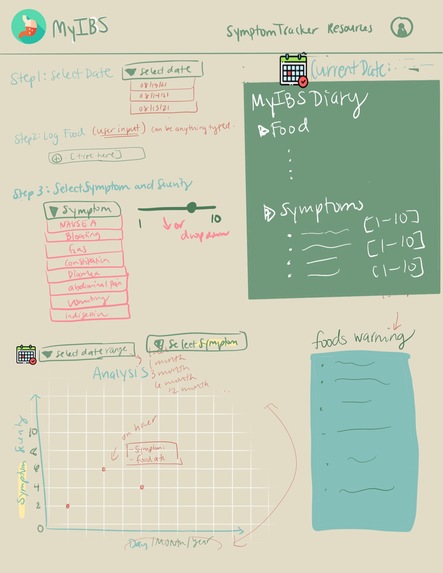 MyIBS
SymptomTracker Resources
Step1: Select Date
Select date
08/14/21
08/15/21
Current Date:
Step2: Log Food (user input) can be anything typed.
[type here]
Step 3: Select Symptom and Severity
Symptom
NAUSEA
Bloating
Gas
Constipation
Diarrhea
abdominal pain
vomiting
indigestion
1
10
or
dropdown
MyIBS Diary
Food
Symptoms
[1-10]
[1-10]
[1-10]
Select date range
month
3 month
6 month
12 month
Select Symptom
Analysis
foods warning
on hover
- Symptom:
- Food ate
Symptom Severity
10
8
6
4
2
0
Day/Month/Year